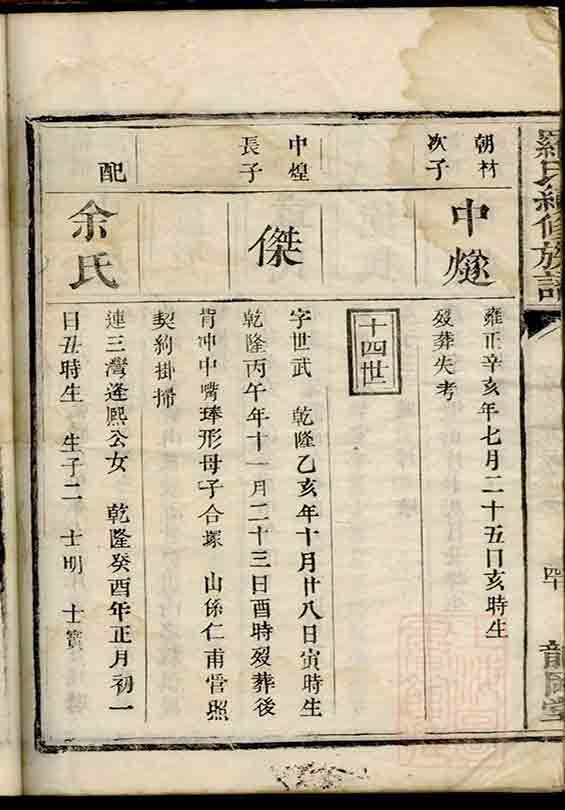 羅氏續修族譜
四十
龍門堂
朝材
次子
中燧
雍正辛亥年七月二十五日亥時生
歿葬失考
十四世
中煌
長子
傑
字世武 乾隆乙亥年十月廿八日寅時生
乾隆丙午年十一月二十三日酉時歿葬後
背冲中嘴琫形母子合塚 山係仁甫管照
契約掛掃
配
余氏
連三灣逢熙公女 乾隆癸酉年正月初一
日丑時生 生子二 士明 士寶